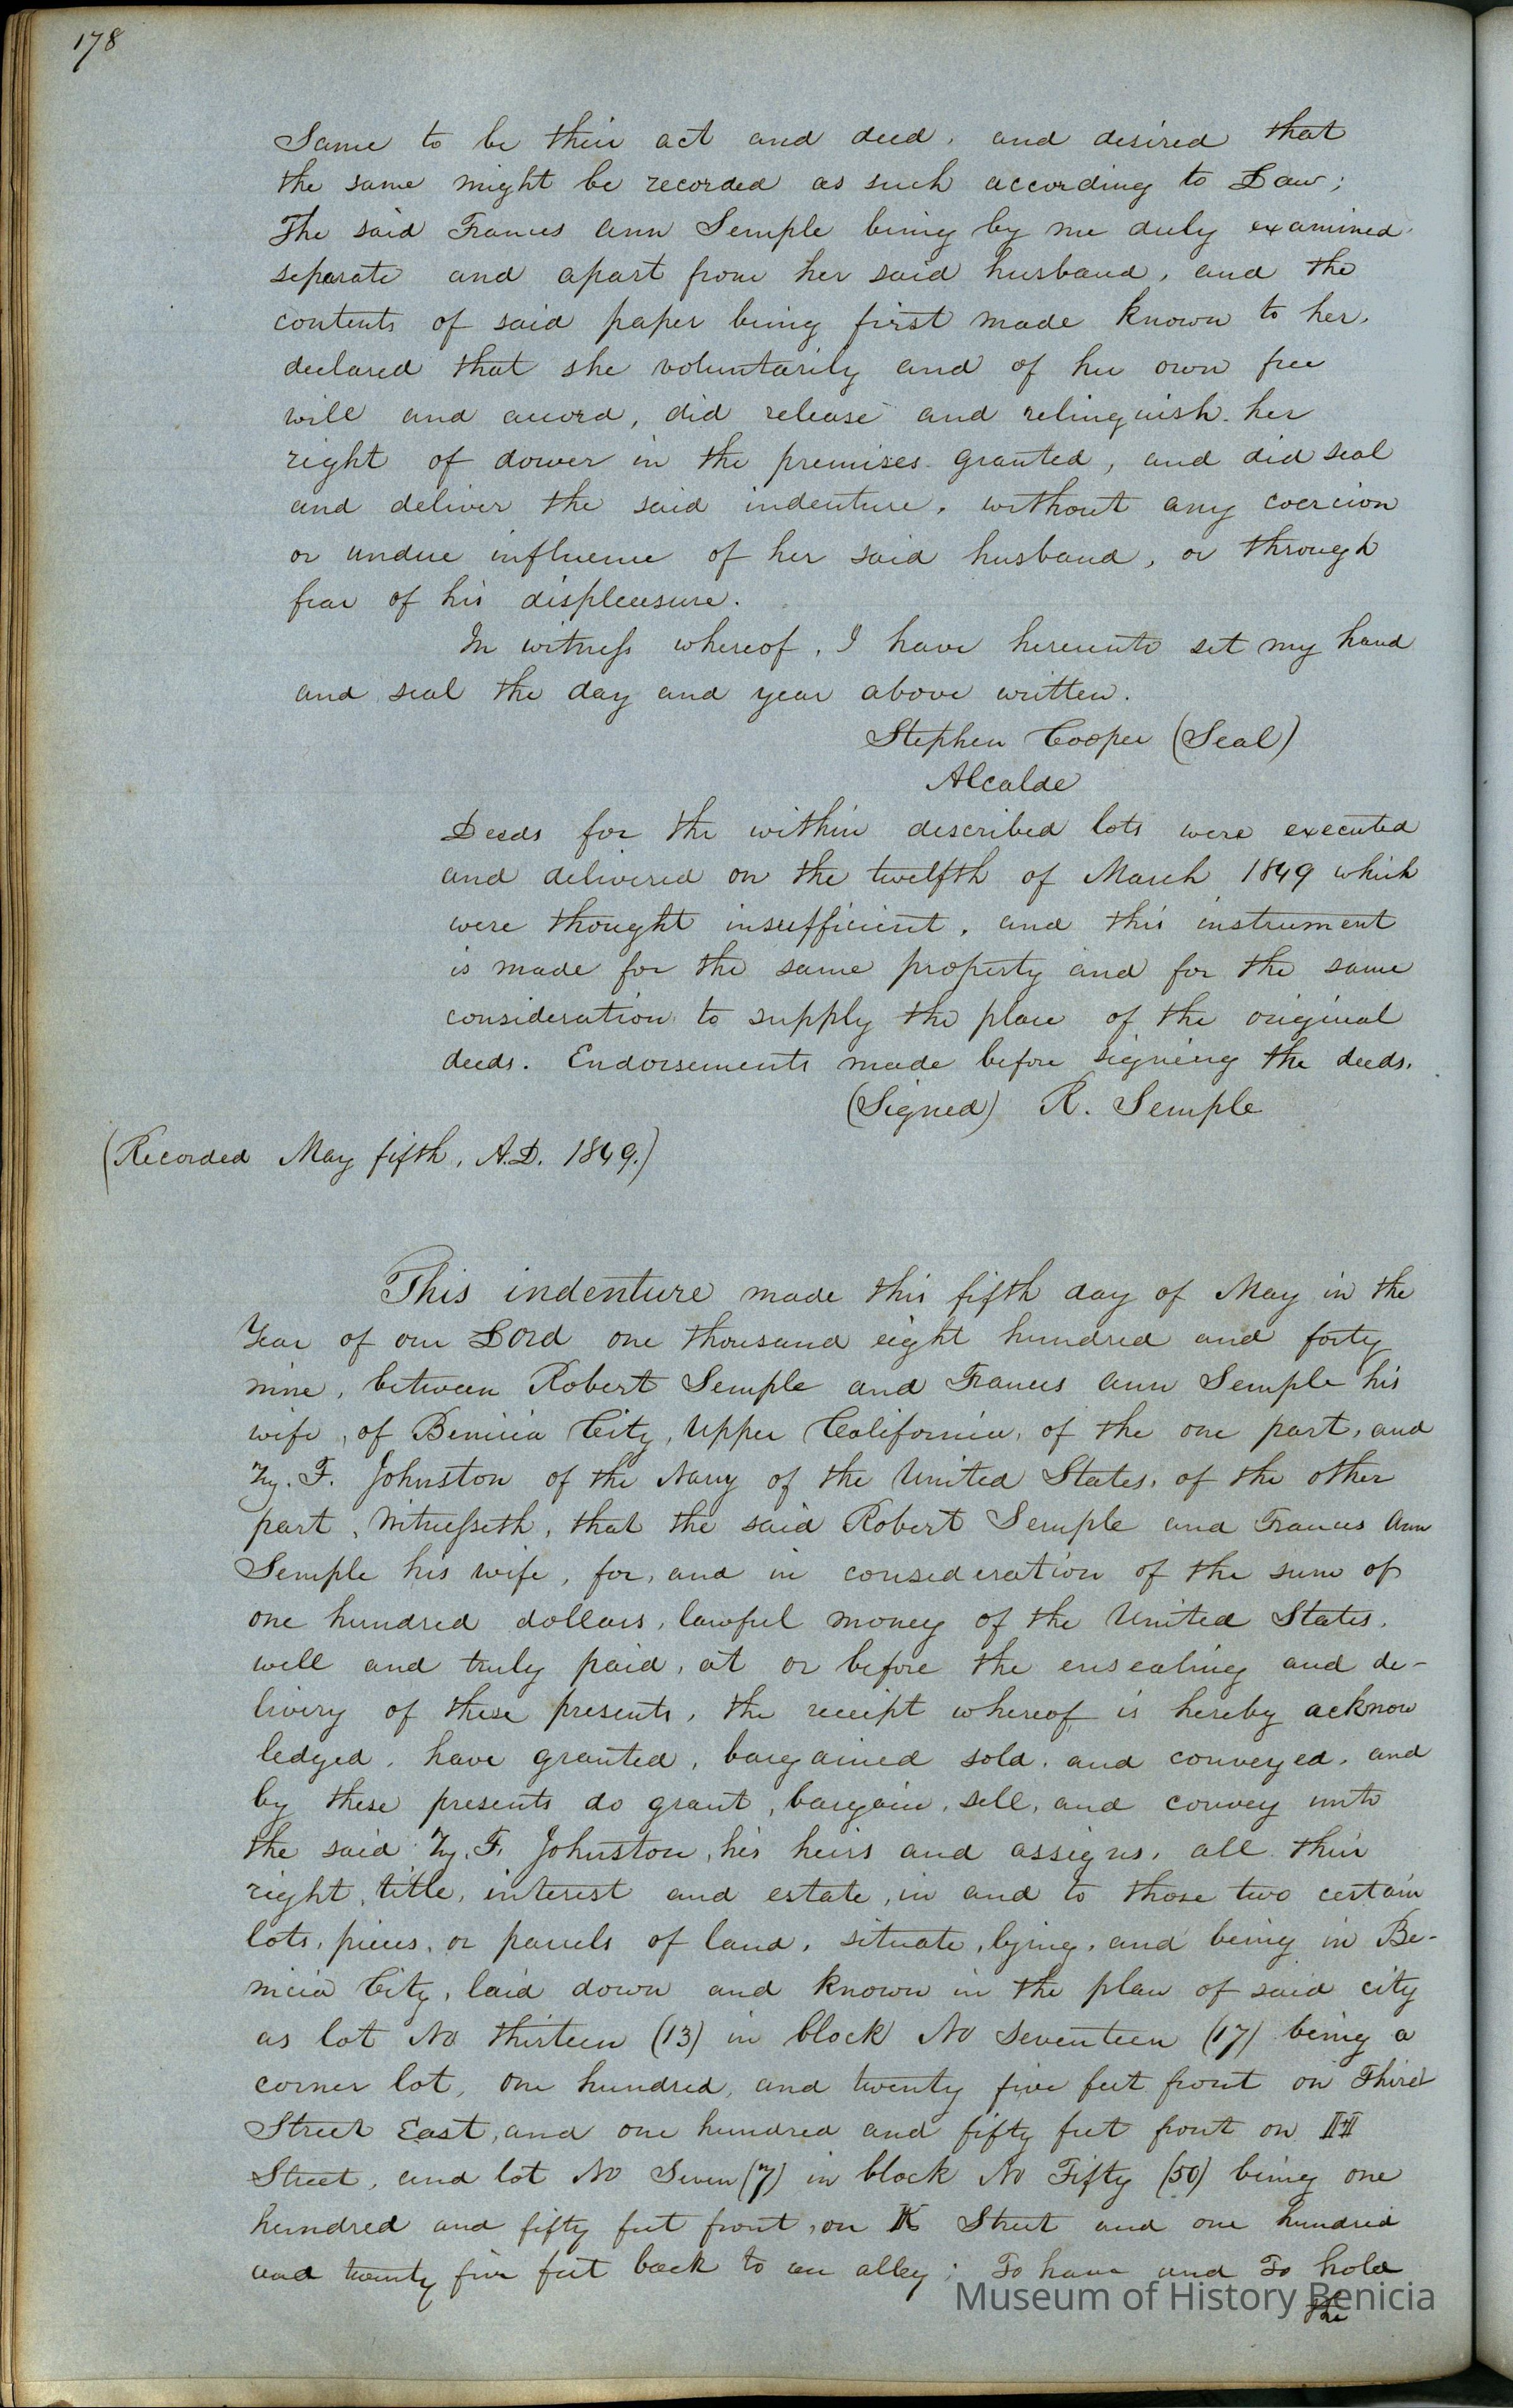 178
Same to be their act and deed, and desired that
the same might be recorded as such according to Law;
The said Frances Ann Semple being by me duly examined
separate and apart from her said husband, and the
contents of said paper being first made known to her,
declared that she voluntarily and of her own free
will and accord, did release and relinquish her
right of dower in the premises granted, and did seal
and deliver the said indenture, without any coercion
or undue influence of her said husband, or through
fear of his displeasure.
In witness whereof, I have hereunto set my hand
and seal the day and year above written.
Stephen Cooper (Seal)
Alcalde
Deeds for the within described lots were executed
and delivered on the twelfth of March 1849 which
were thought insufficient, and this instrument
is made for the same property and for the same
consideration to supply the place of the original
deeds. Endorsements made before signing the deeds.
(Signed) R. Semple
(Recorded May fifth, A.D. 1849.)
This indenture made this fifth day of May in the
Year of our Lord one thousand eight hundred and forty
nine, between Robert Semple and Frances Ann Semple his
wife, of Benicia City, Upper California, of the one part, and
F. Johnston of the Navy of the United States, of the other
part, Witnesseth, that the said Robert Semple and Frances Ann
Semple his wife, for, and in consideration of the sum of
one hundred dollars, lawful money of the United States,
well and truly paid, at or before the ensealing and de-
livery of these presents, the receipt whereof is hereby acknow
ledged, have granted, bargained sold, and conveyed, and
by these presents do grant, bargain, sell, and convey unto
the said F. Johnston, his heirs and assigns, all their
right, title, interest and estate, in and to those two certain
lots, pieces, or parcels of land, situate, lying, and being in Be-
nicia City, laid down and known in the plan of said city
as lot No thirteen (13) in block No seventeen (17) being a
corner lot, one hundred, and twenty five feet front on Third
Street East, and one hundred and fifty feet front on H
Street, and lot No Seven (7) in block No Fifty (50) being one
hundred and fifty feet front, on K Street and one hundred
and twenty five feet back to an alley; To have and To hold
the
Museum of History Benicia